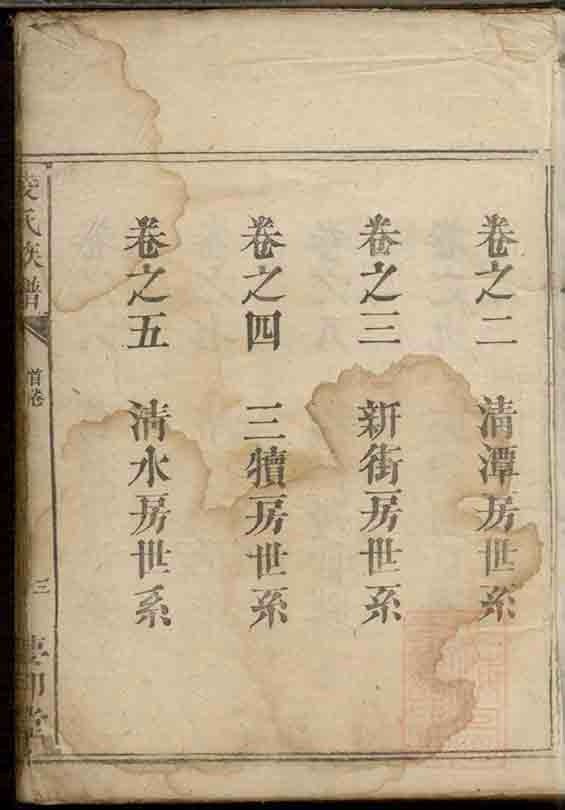 卷之二 清潭房世系
卷之三 新街房世系
卷之四 三犢房世系
卷之五 清水房世系
氏族譜
首卷
三